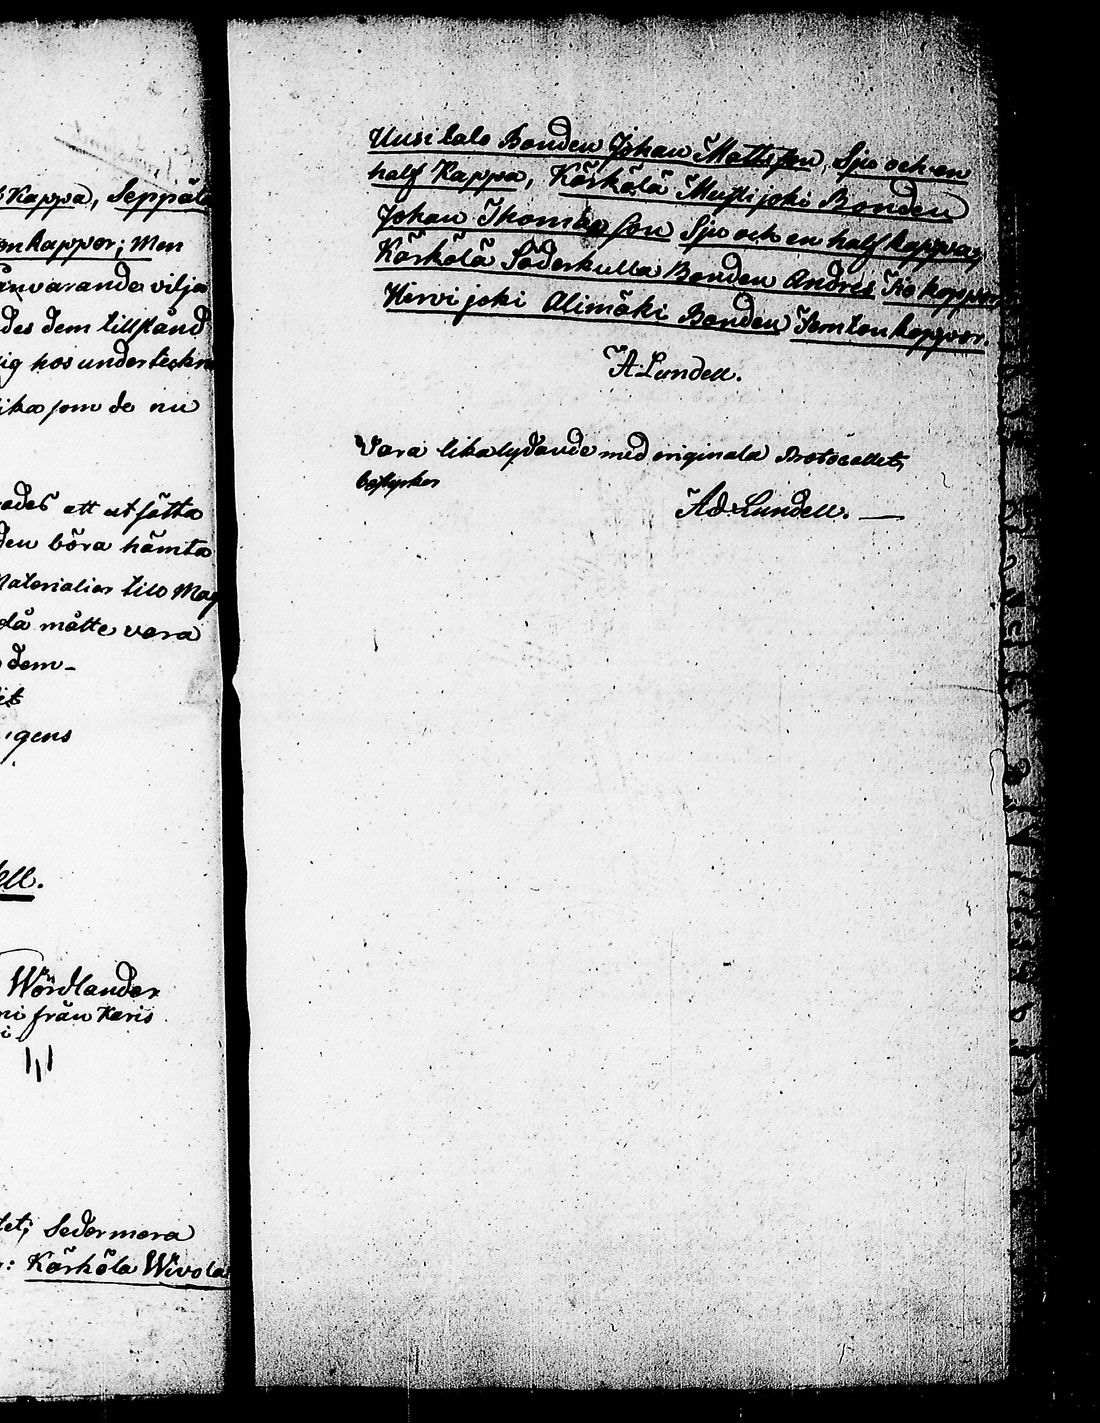 Kappa, Seppälä
kappor; Men
närvarande vilja
des dem tillstånd
sig hos underteckn
lika som de nu
ades att utsätta
den böra hämta
Materialier till Mag
då måtte vara
dem-
igens
ell.
Wördlander
från Karis
Sedermera
Kärkölä Wivola
Uusitalo Bonden Johan Mattsson, Sju och en
half Kappa, Kärkölä Mustjoki Bonden
Johan Thomasson Sju och en half kappa,
Kärkölä Söderkulla Bonden Andres Tio kappor
Hirvijoki Alimäki Bonden Femton kappor.
A Lundell.
Vara likalydande med originala Protocollet,
bestyrker
Ad Lundell. —